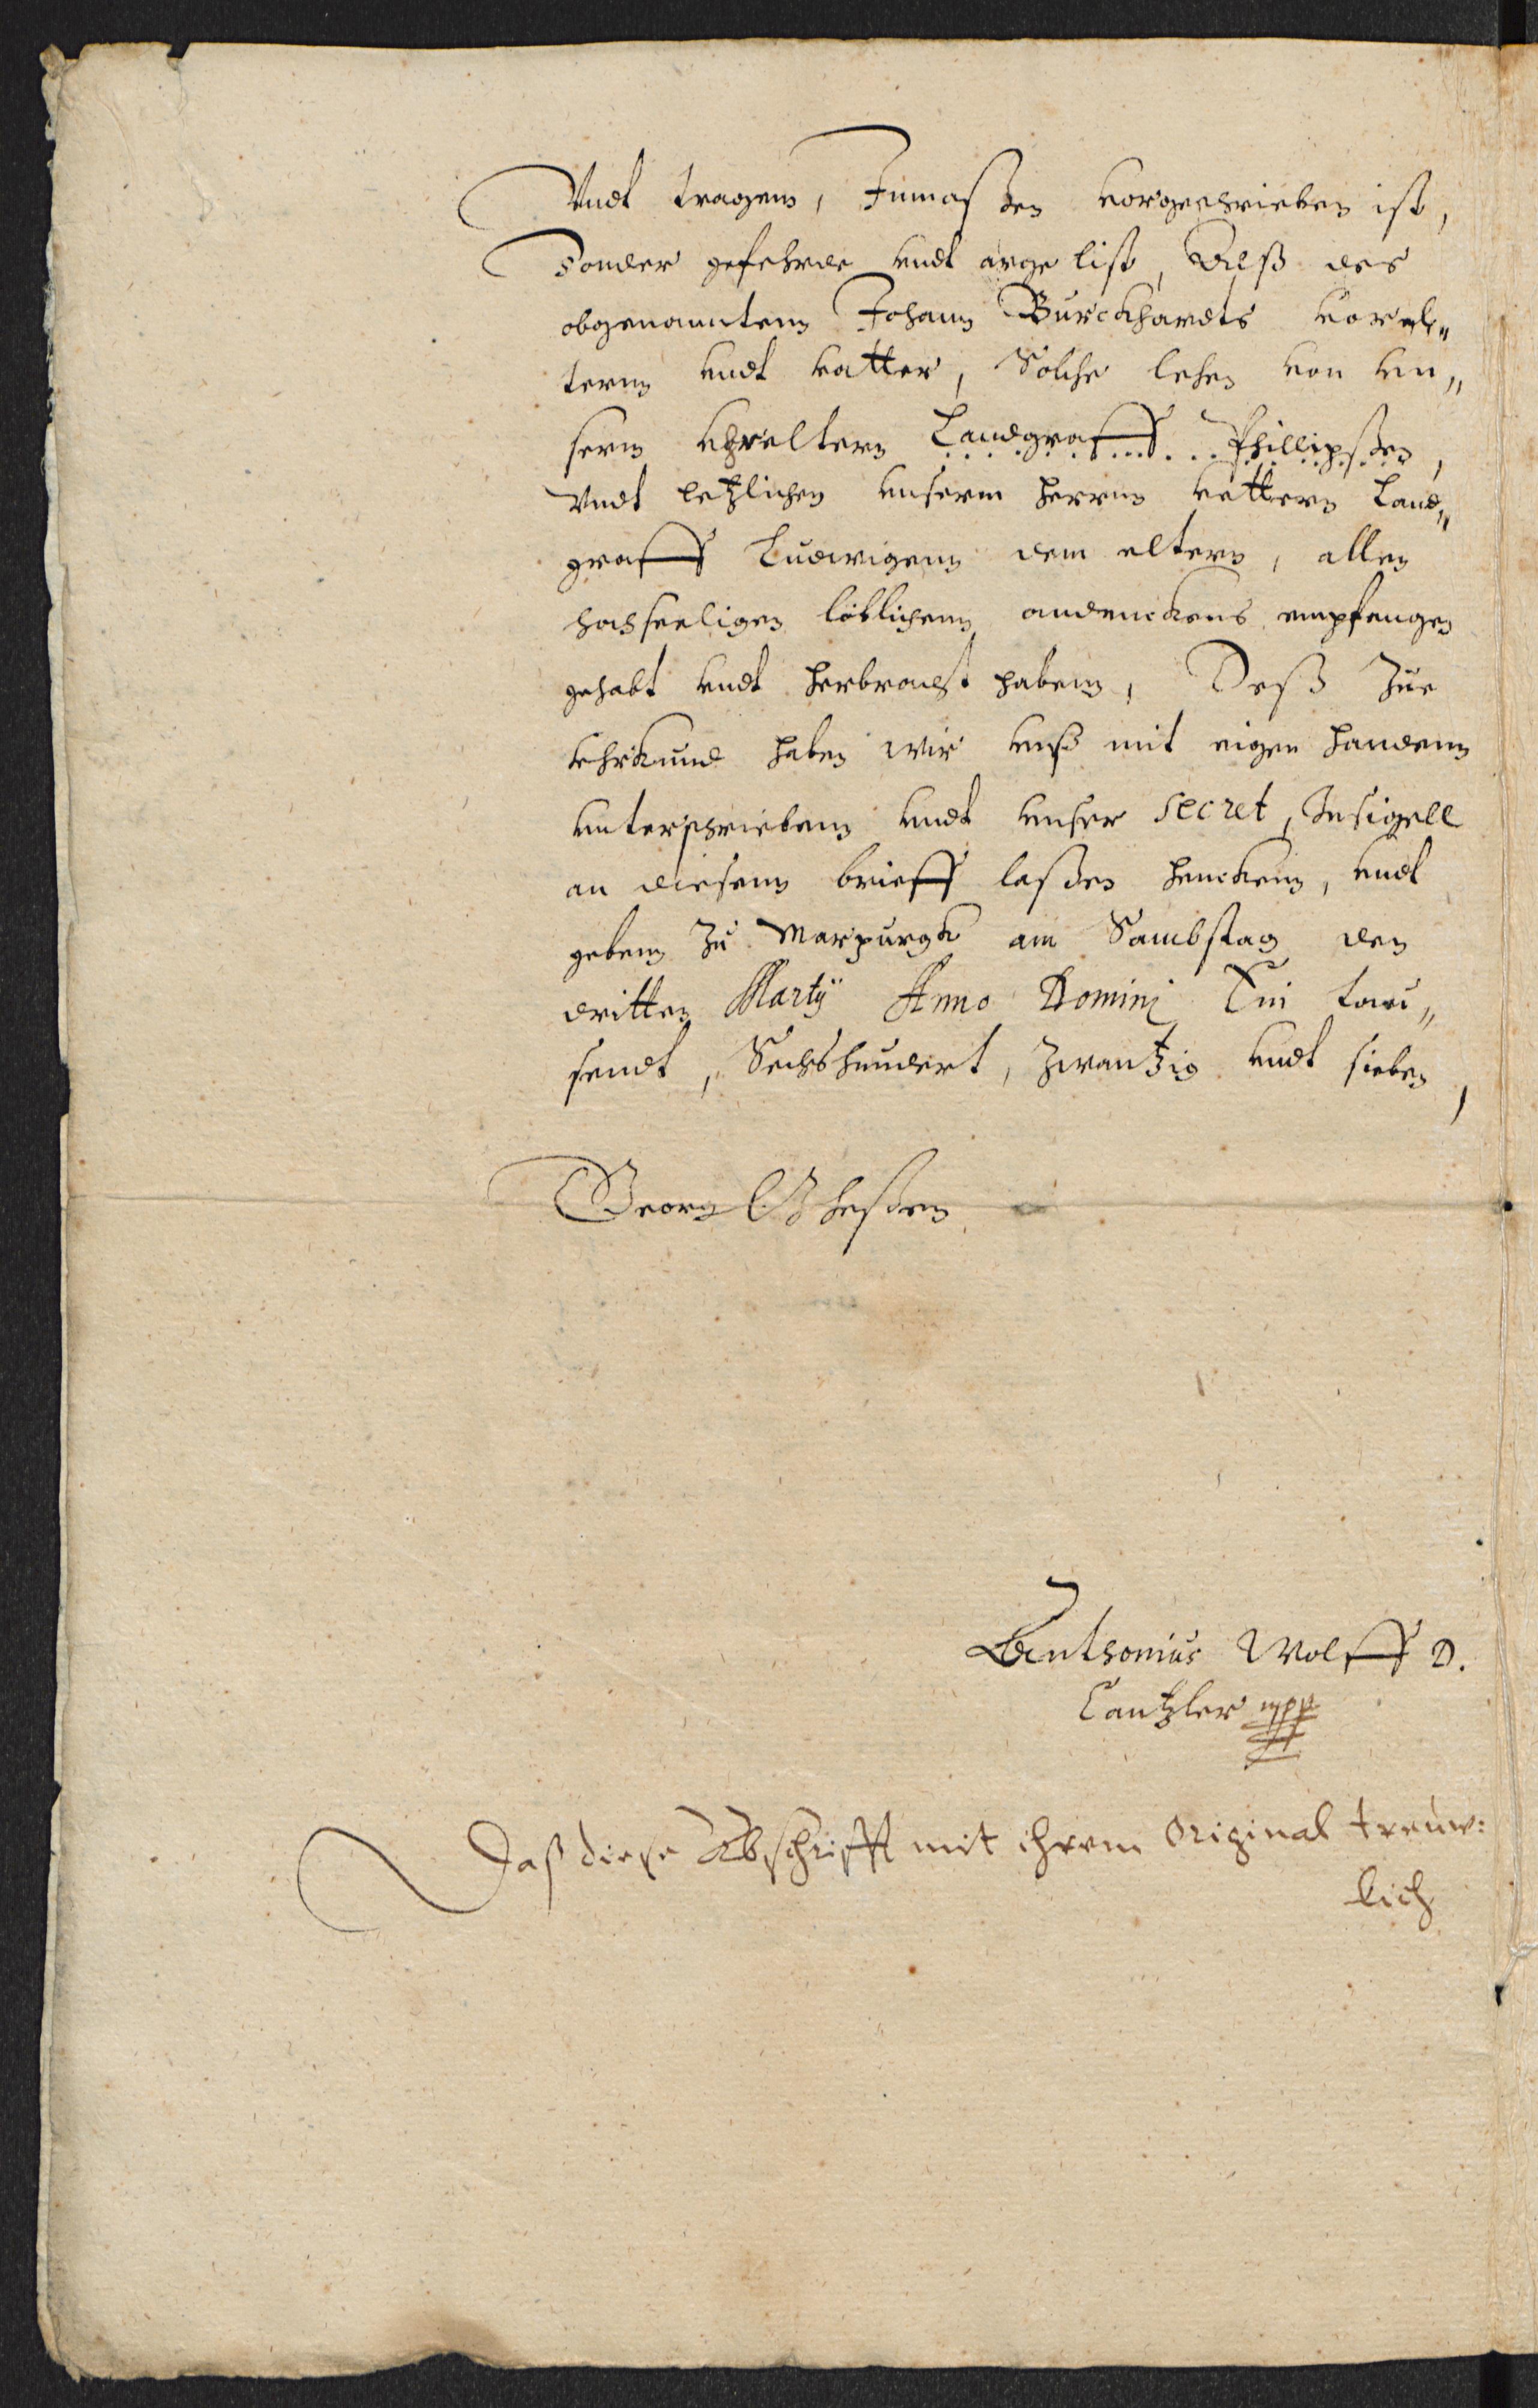 Vndt tragenn, Inmaßen vorgeschrieben ist,
sonder gefehrde vndt arge list, Alß des
obgenanntenn Johann Burckhardts vorel„
ternn vndt vatter, Solche lehen von vn„
serm Vhreltern Landgraff Phillipßen,
Vndt letzlichen vnserm herrnn vettern Land„
graff Ludwigenn dem eltern, allen
hochseeligen löblichenn andenckens empfangen
gehabt vndt herbracht habenn, Deß Zue
Vhrkund haben wir vnß mit eigen handenn
vnterschriebenn vndt vnser Secret, Insigell
an diesenn brieff laßen henckenn, vndt
gebenn Zu Marpurgk am Sambstag den
dritten Martÿ Anno Domini Ein tau„
sendt, Sechshundert, Zwantzig vndt sieben,
Georg L Z heßen
Anthonius Wolff D.
Cantzler mpp
Daß diese Abschrifft mit ihrem Original treuw:
lich